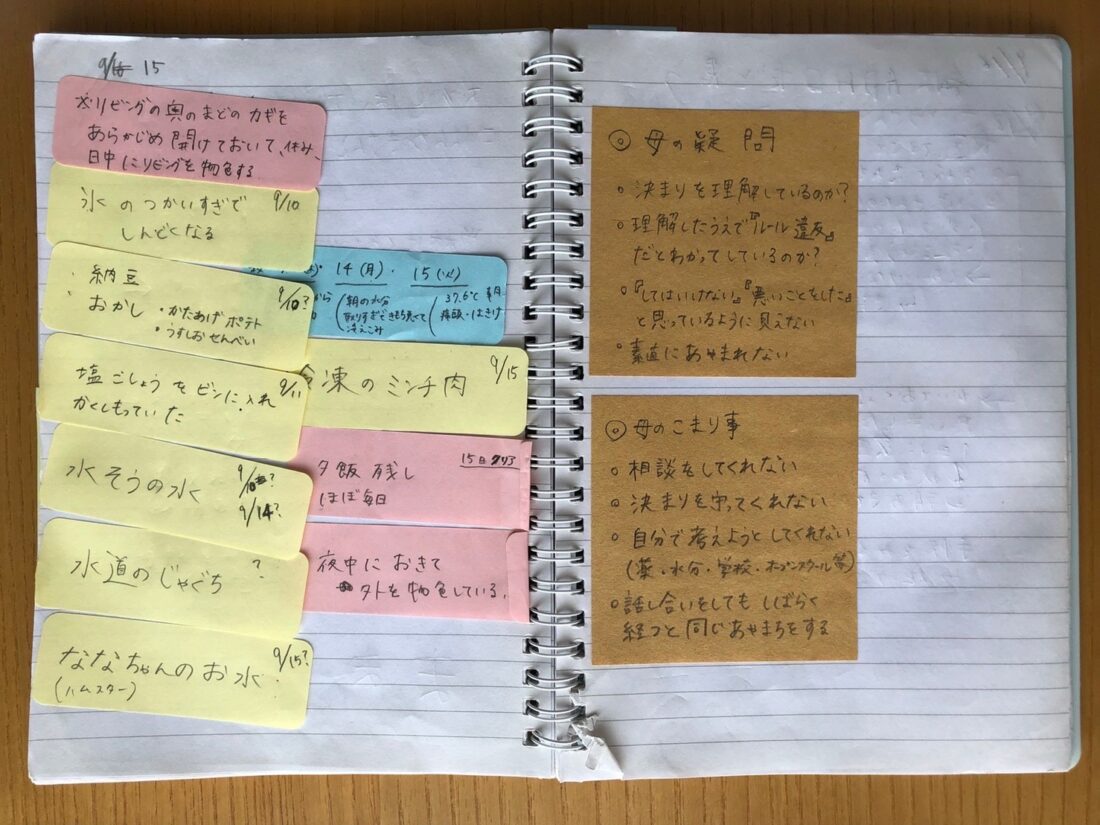 9/15
☆リビングの奥のまどのカギを
あらかじめ開けておいて、休み、
日中にリビングを物色する
氷のつかいすぎで 9/10
しんどくなる
納豆 9/10?
おかし ・かたあげポテト
・うすしおせんべい
塩こしょうをビンに入れ 9/11
かくしもっていた
水そうの水 9/10?
9/14?
水道のじゃぐち ?
ななちゃんのお水 9/15?
(ハムスター)
14(月)・ 15(火)
朝の水分
取りすぎできもち悪くて
冷えこみ
37.6℃
頭痛・はきけ
凍のミンチ肉 9/15
夕飯残し 15日
ほぼ毎日
夜中におきて
外を物色している。
◎母の疑問
○決まりを理解しているのか?
○理解したうえで『ルール違反』
だとわかってしているのか?
○『してはいけない』『悪いことをした』
と思っているように見えない
○素直にあやまれない
◎母のこまり事
○相談をしてくれない
○決まりを守ってくれない
○自分で考えようとしてくれない
(薬・水分・学校・オープンスクール等)
○話し合いをしてもしばらく
経つと同じあやまちをする